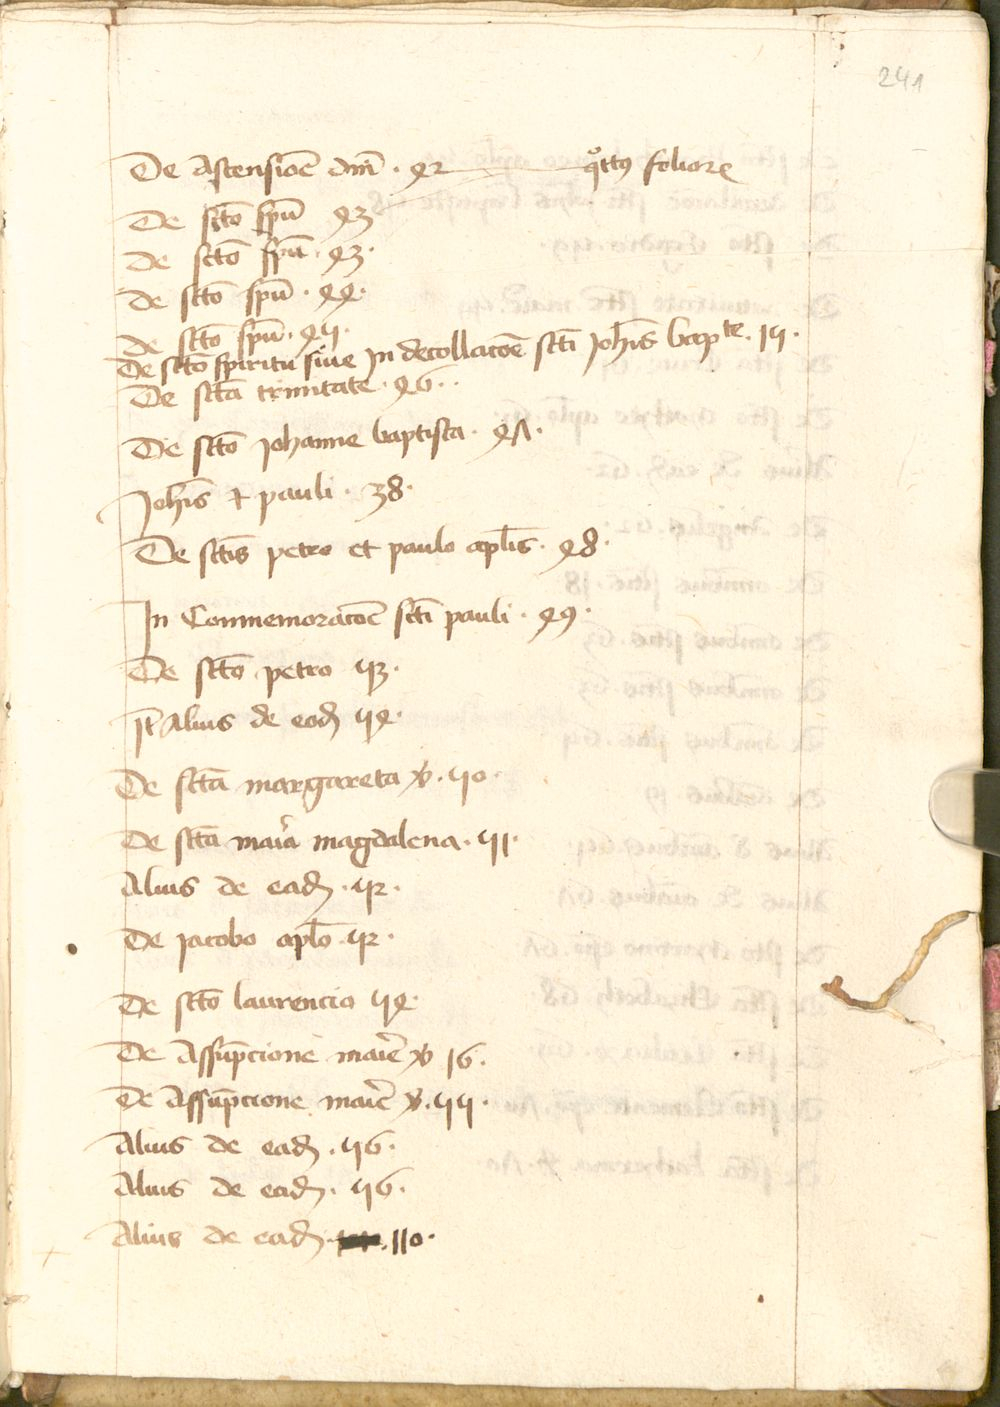 241
De Ascensiōe dnī · 42 q̊ttꝰ folioꝝ
De sctō spū 43
de sctō spū · 43 ·
de sctō spū · 44 ·
de sctō spū · 45 ·
De sctō spiritu siue In decollacōe sctī Joh̄is bapte · 15 ·
De sctā trinitate · 46 ·
De sctō Johanne baptista · 47 ·
Joh̄is et pauli · 38 ·
De sctīs petro et paulo apl̄is · 48 ·
In Conmemoracōe sctī pauli · 49 ·
De sctō petro 53 ·
Alius de eod̄ 54 ·
De sctā margareta v̄ · 50 ·
De sctā maīa magdalena · 51 ·
Alius de ead̄ · 52 ·
De Jacobo apl̄o · 52 ·
De sctō laurencio 54
De Assūpcione maīe v̄ 16 ·
De Assūpcione maīe v̄ · 55 ·
Alius de ead̄ · 56 ·
Alius de ead̄ · 56 ·
Alius de ead̄ · 110 ·